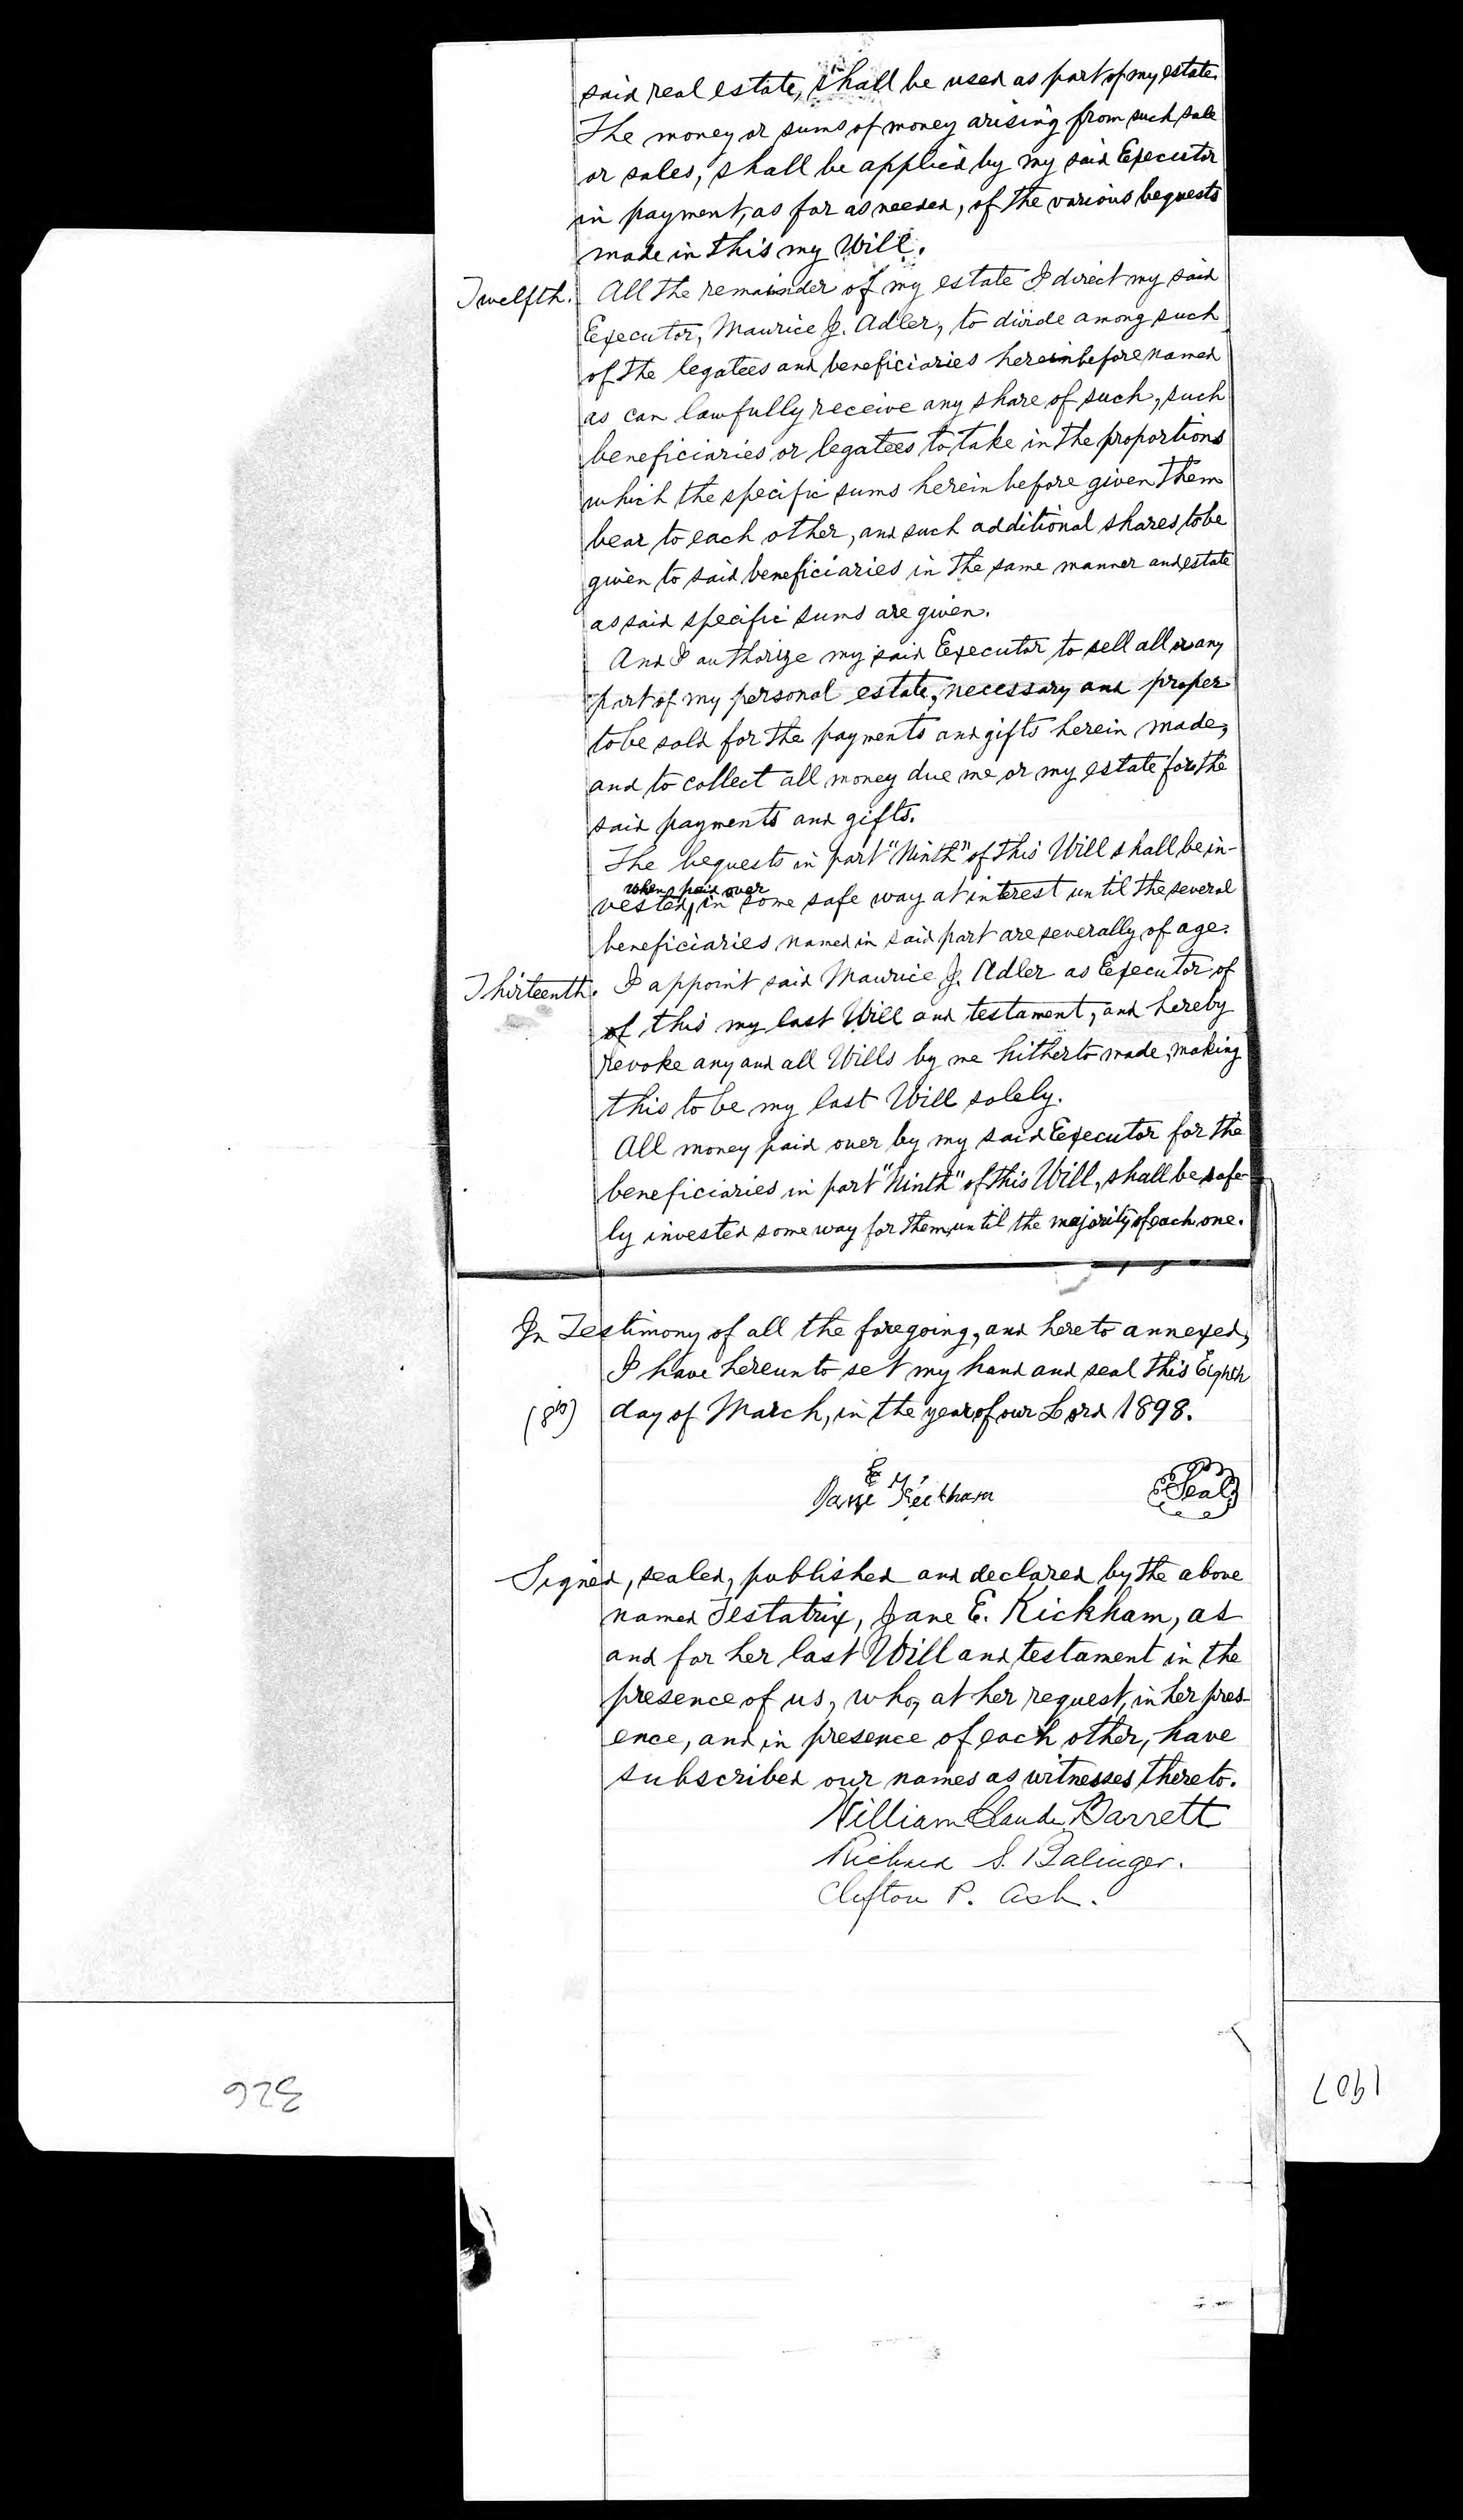 said real estate, shall be used as part of my estate.
The money or sums of money arising from such sale
or sales, shall be applied by my said Executor
in payment, as far as needed, of the various bequests
made in this my Will.
Twelfth. All the remainder of my estate I direct my said
Executor, Maurice J. Adler, to divide among such
of the legatees and beneficiaries hereinbefore named
as can lawfully receive any share of such, such
beneficiaries or legatees to take in the proportions
which the specific sums hereinbefore given them
bear to each other, and such additional shares to be
given to said beneficiaries in the same manner and estate
as said specific sums are given.
And I authorize my said Executor to sell all or any
part of my personal estate, necessary and proper
to be sold for the payments and gifts herein made,
and to collect all money due me or my estate for the
said payments and gifts.
The bequests in part "Ninth" of this Will shall be in-
when paid over
vested, in some safe way at interest until the several
beneficiaries named in said part are severally of age.
Thirteenth. I appoint said Maurice J. Adler as Executor of
of this my last Will and testament, and hereby
revoke any and all Wills by me hitherto made, making
this to be my last Will solely.
All money paid over by my said Executor for the
beneficiaries in part "Ninth" of this Will, shall be safe-
ly invested some way for them, until the majority of each one.
In Testimony of all the foregoing, and hereto annexed,
I have hereunto set my hand and seal this Eighth
(8th) day of March, in the year of our Lord 1898.
Jane E Kickham
Seal
Signed, sealed, published and declared by the above
named Testatrix, Jane E. Kickham, as
and for her last Will and testament in the
presence of us, who, at her request, in her pres-
ence, and in presence of each other, have
subscribed our names as witnesses thereto.
William Claude Barrett
Richard S. Balinger.
Clifton P. Ash.
326
1907